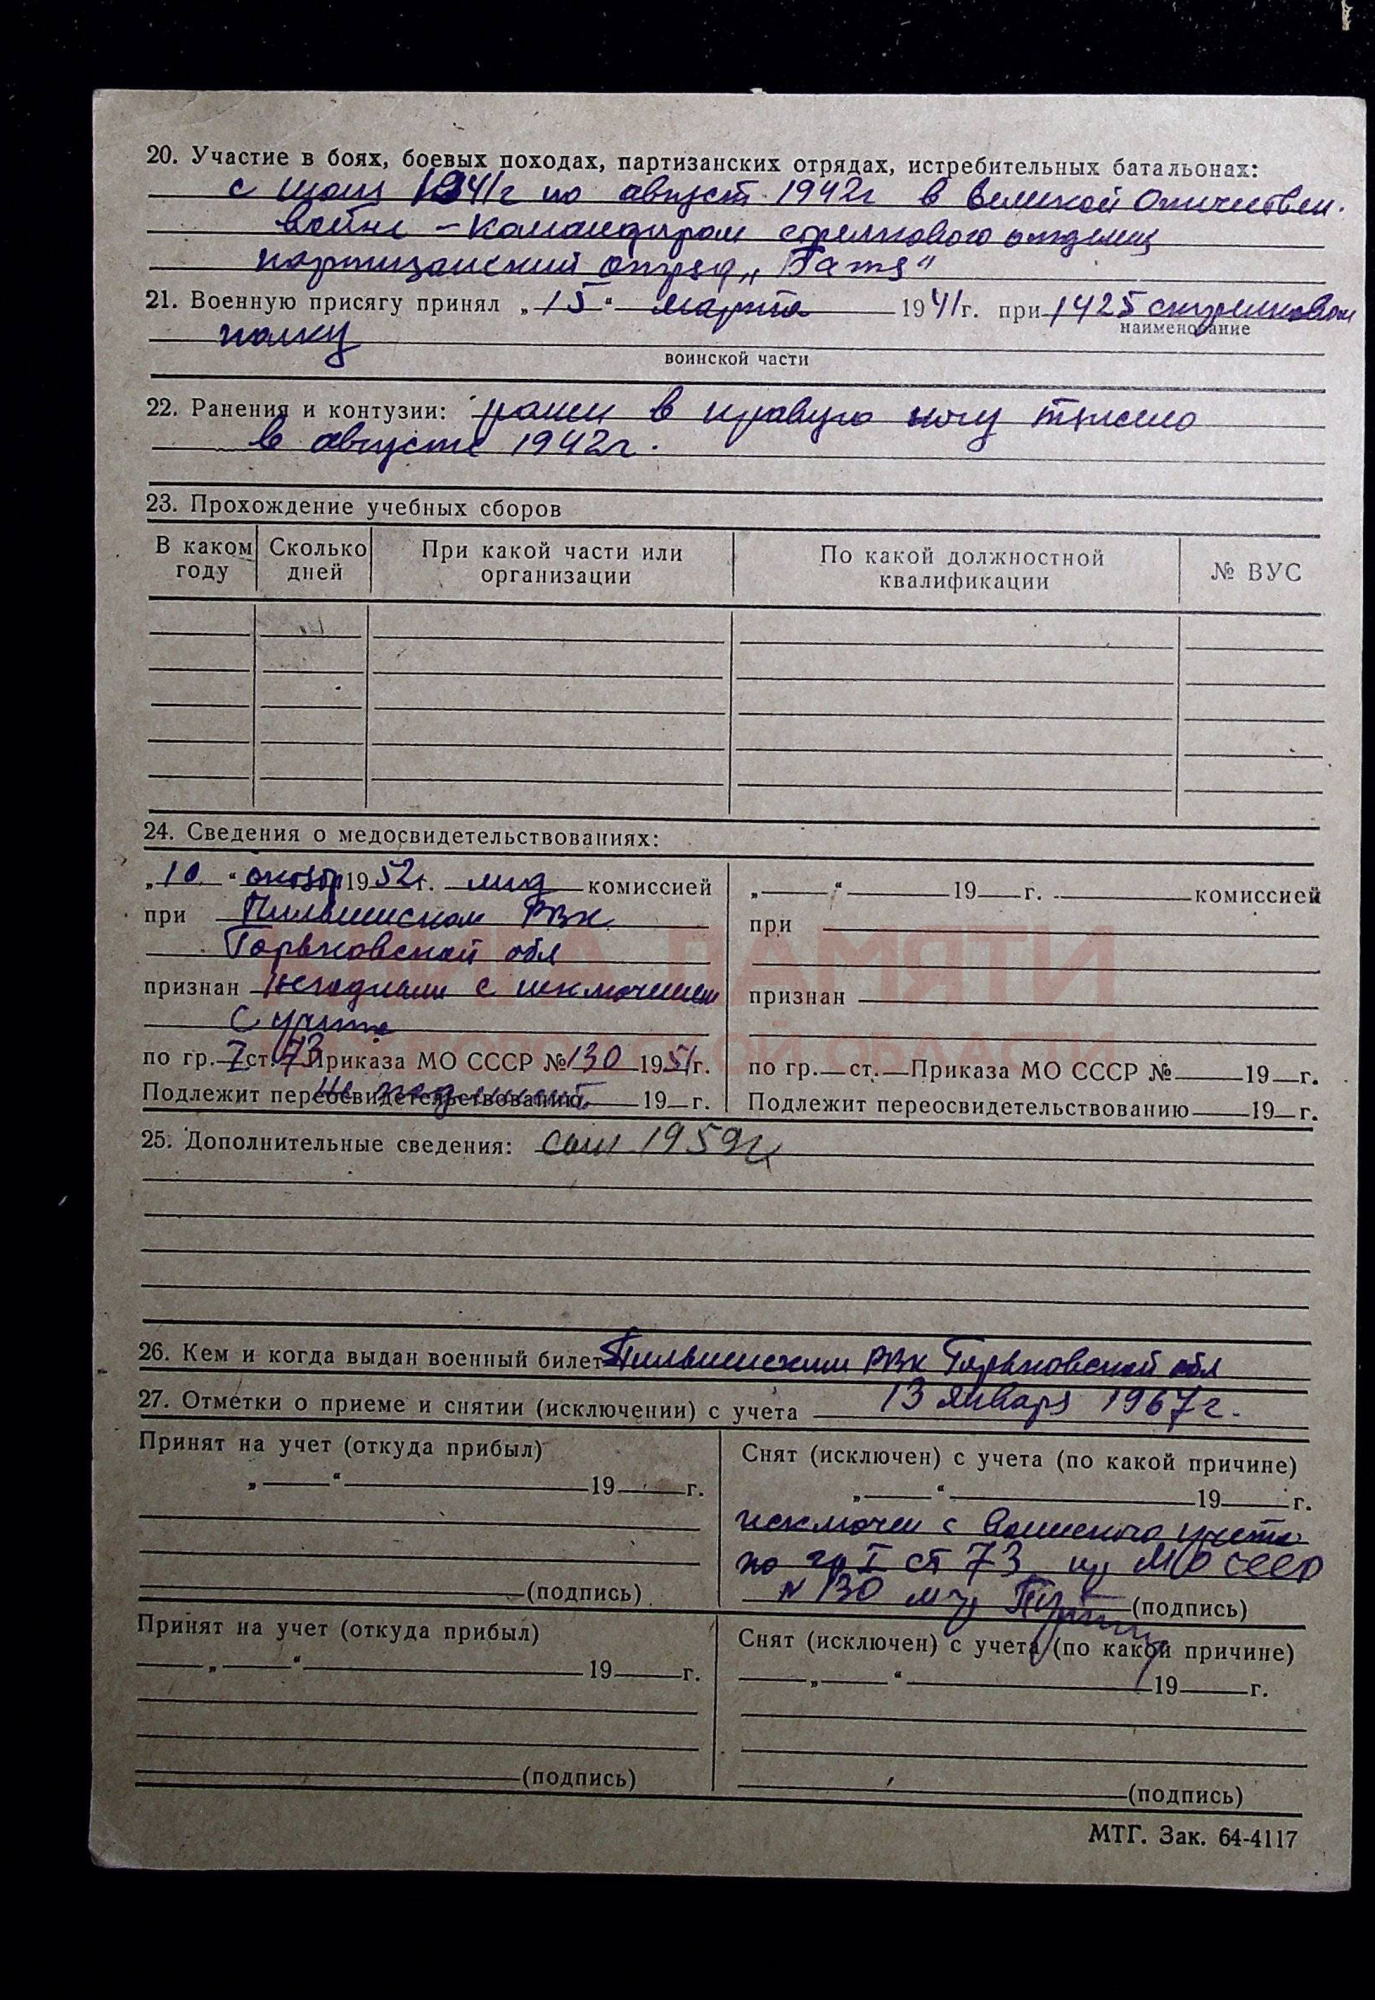 20. Участие в боях, боевых походах, партизанских отрядах, истребительных батальонах:
с 1941г по август 1942г в Великой Отечествен.
войне - Командиром стрелкового отделен
партизанский отряд „Батя“
21. Военную присягу принял „15“ марта 1941г. при 1425 стрелковом
наименование
полку
воинской части
22. Ранения и контузии: ранен в правую ногу тяжело
в августе 1942г.
23. Прохождение учебных сборов
В каком году Сколько дней При какой части или организации По какой должностной квалификации № ВУС
24. Сведения о медосвидетельствованиях:
„10“ октябр 1952г. мед комиссией „ “ 19 г. комиссией
при Пильнинском РВК при
Горьковской обл
признан негодным с исключением признан
с учета
по гр. 7 ст. 73 Приказа МО СССР № 130 1951г. по гр. ст. Приказа МО СССР № 19 г.
Подлежит переосвидетельствованию не подлежит 19 г. Подлежит переосвидетельствованию 19 г.
КНИГА ПАМЯТИ
НИЖЕГОРОДСКОЙ ОБЛАСТИ
25. Дополнительные сведения: 1959г
26. Кем и когда выдан военный билет Пильнинским РВК Горьковской обл
13 января 1967г.
27. Отметки о приеме и снятии (исключении) с учета
Принят на учет (откуда прибыл) Снят (исключен) с учета (по какой причине)
„ “ 19 г. „ “ 19 г.
исключен с воинского учета
по гр I ст 73 пр МО СССР
(подпись) № 130 (подпись)
Принят на учет (откуда прибыл) Снят (исключен) с учета (по какой причине)
„ “ 19 г. „ “ 19 г.
(подпись) (подпись)
МТГ. Зак. 64-4117